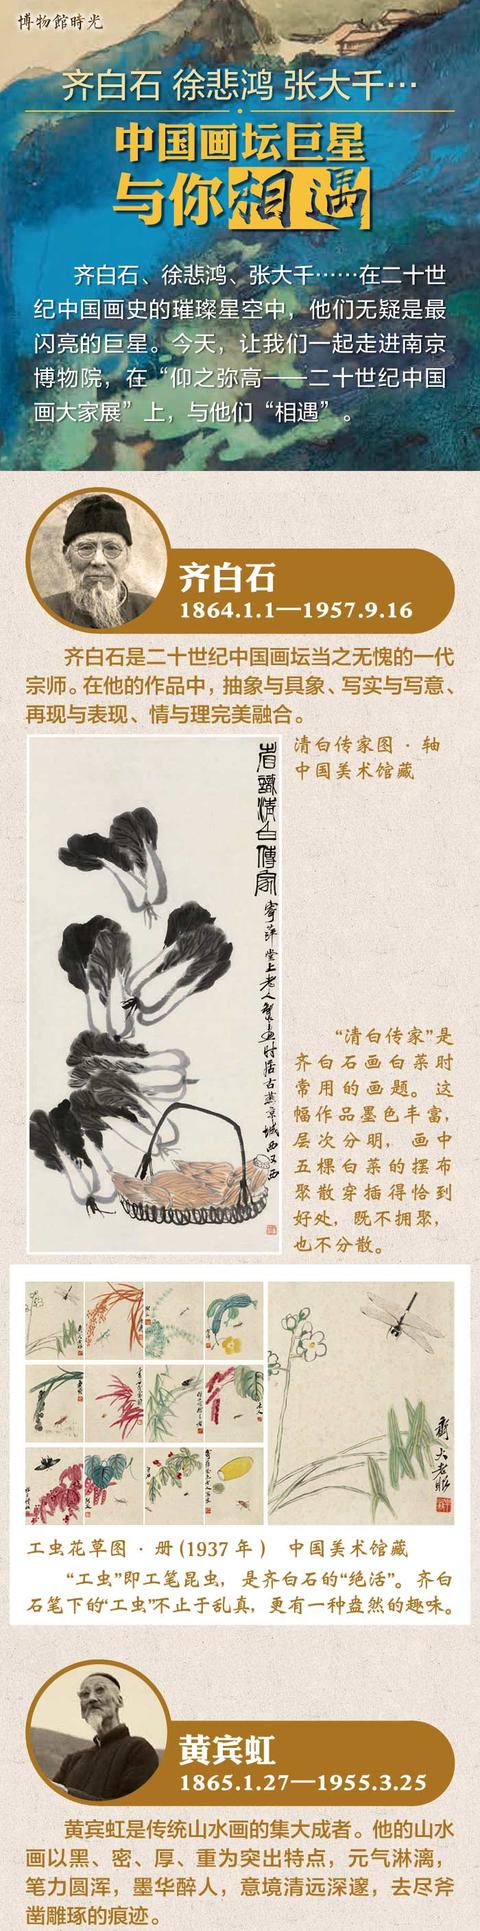 博物館時光
齐白石 徐悲鸿 张大千…
中国画坛巨星
与你相遇
齐白石、徐悲鸿、张大千……在二十世
纪中国画史的璀璨星空中，他们无疑是最
闪亮的巨星。今天，让我们一起走进南京
博物院，在“仰之弥高——二十世纪中国
画大家展”上，与他们“相遇”。
齐白石
1864.1.1—1957.9.16
齐白石是二十世纪中国画坛当之无愧的一代
宗师。在他的作品中，抽象与具象、写实与写意、
再现与表现、情与理完美融合。
清白传家图 · 轴
中国美术馆藏
清白傳家
寄萍堂上老人製畫時居古燕京城西又西
“清白传家”是
齐白石画白菜时
常用的画题。这
幅作品墨色丰富，
层次分明，画中
五棵白菜的摆布
聚散穿插得恰到
好处，既不拥聚，
也不分散。
工虫花草图 · 册(1937年) 中国美术馆藏
“工虫”即工笔昆虫，是齐白石的“绝活”。齐白
石笔下的“工虫”不止于乱真，更有一种盎然的趣味。
黄宾虹
1865.1.27—1955.3.25
黄宾虹是传统山水画的集大成者。他的山水
画以黑、密、厚、重为突出特点，元气淋漓，
笔力圆浑，墨华醉人，意境清远深邃，去尽斧
凿雕琢的痕迹。